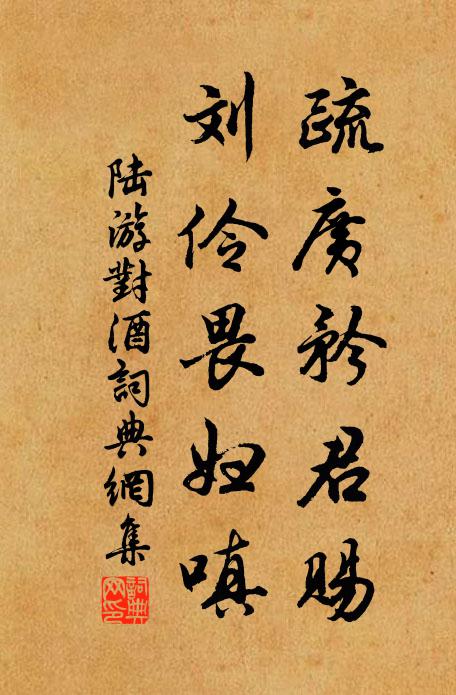 疏廣矜君賜
刘伶畏妇嗔
陆游對酒詞典網集
詞典網印